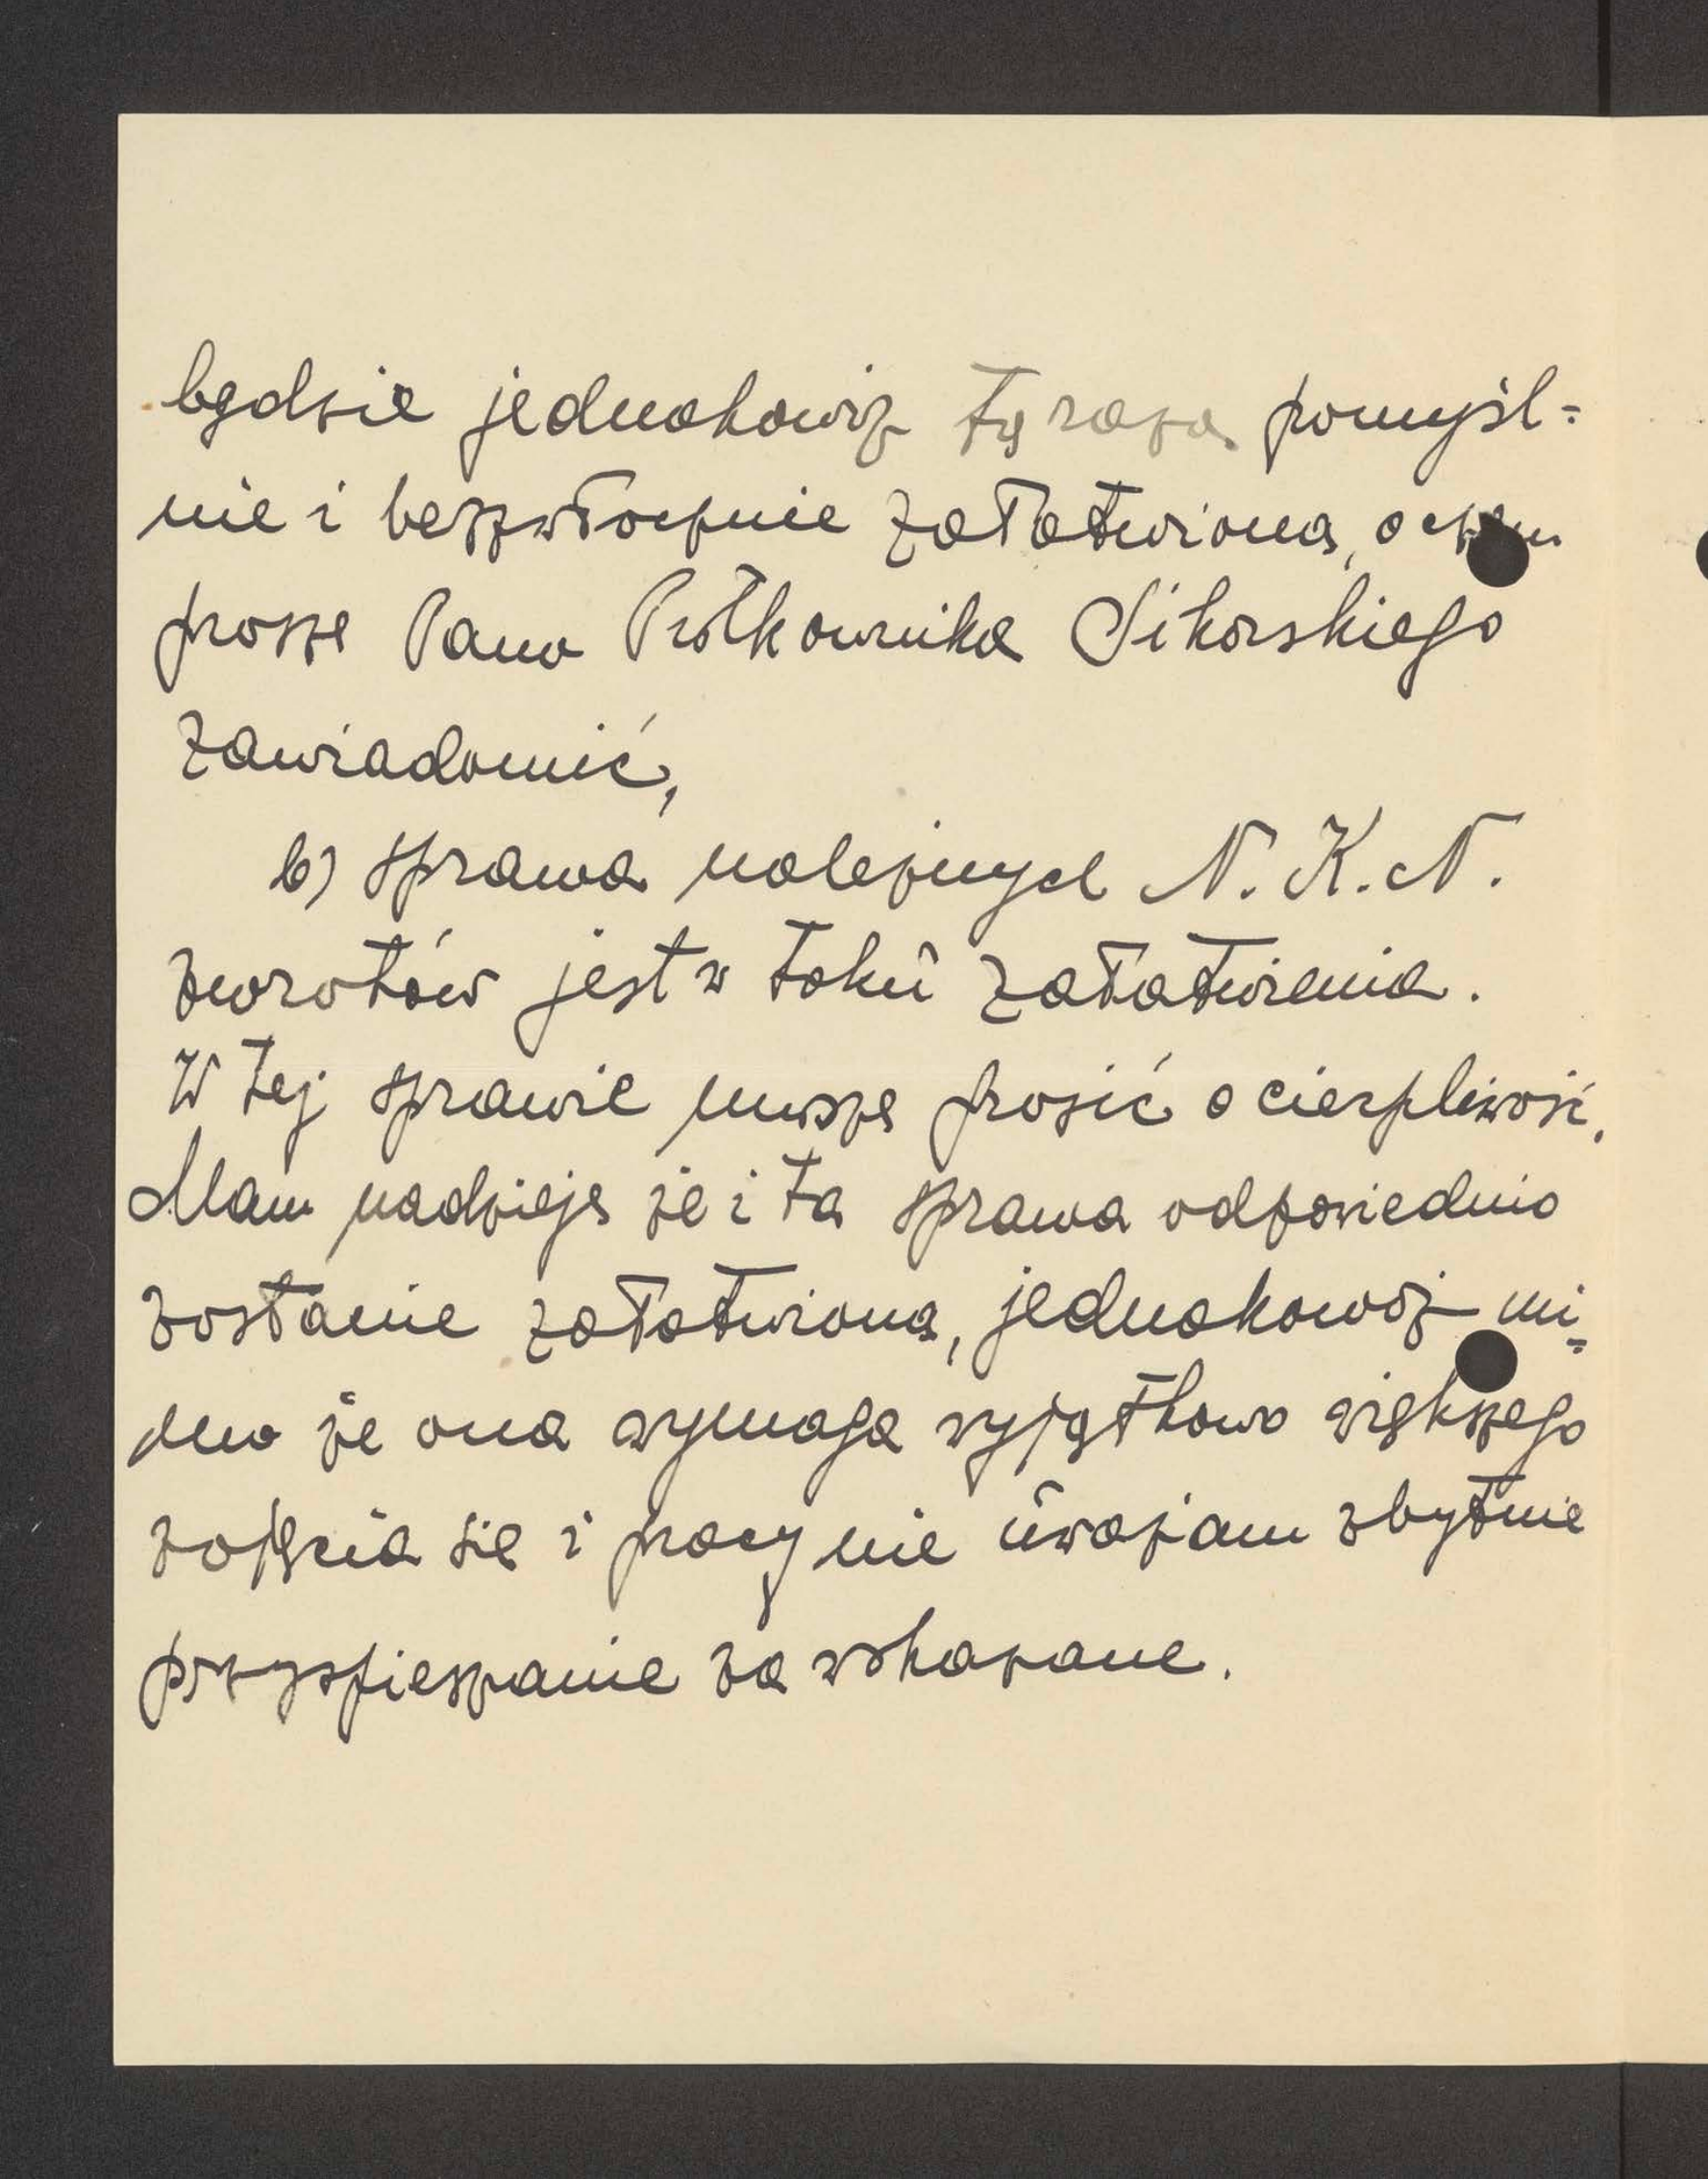 będzie jednakowoż tą razą pomyśl=
nie i bezzwłocznie załatwiona, o czem
proszę Pana Pułkownika Sikorskiego
zawiadomić,
b) sprawa należnych N. K. N.
zwrotów jest w toku załatwienia.
W tej sprawie muszę prosić o cierpliwość.
Mam nadzieję że i ta sprawa odpowiednio
zostanie załatwiona, jednakowoż mi=
mo że ona wymaga wyjątkowo większego
zajęcia się i pracy nie uważam zbytnie
przyspieszanie za wskazane.